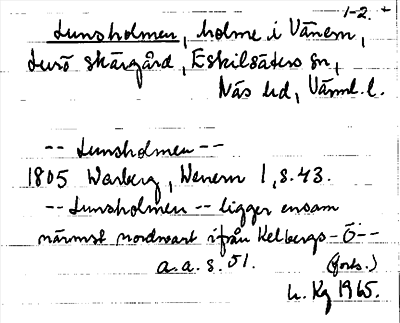 1-2. +
Lunsholmen, holme i Vänern,
Lurö skärgård, Eskilsäters sn,
Näs hd, Värml. l.
-- Lunsholmen --
1805 Warberg, Wenern 1, s. 43.
-- Lunsholmen -- ligger ensam
närmst nordwart ifrån Kelbergs-Ö--
a.a. s. 51. (forts.)
1965.